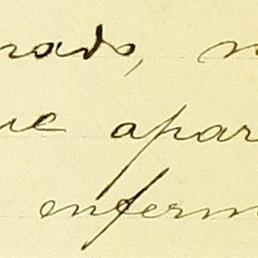 rado, n
ue apar
enferm